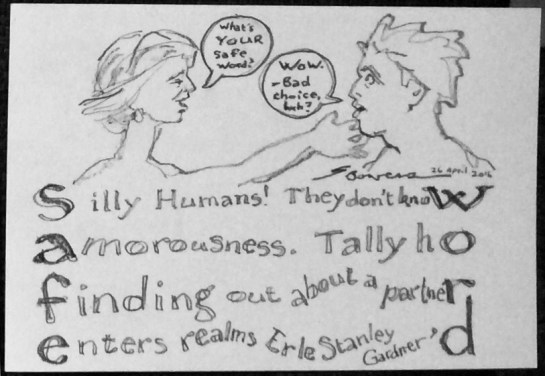 What's
YOUR
safe
word?
Wow.
-Bad
choice,
huh?
Sowers 26 April 2016
Silly Humans! They don't know
amorousness. Tally ho
finding out about a partner
enters realms Erle Stanley Gardner'd